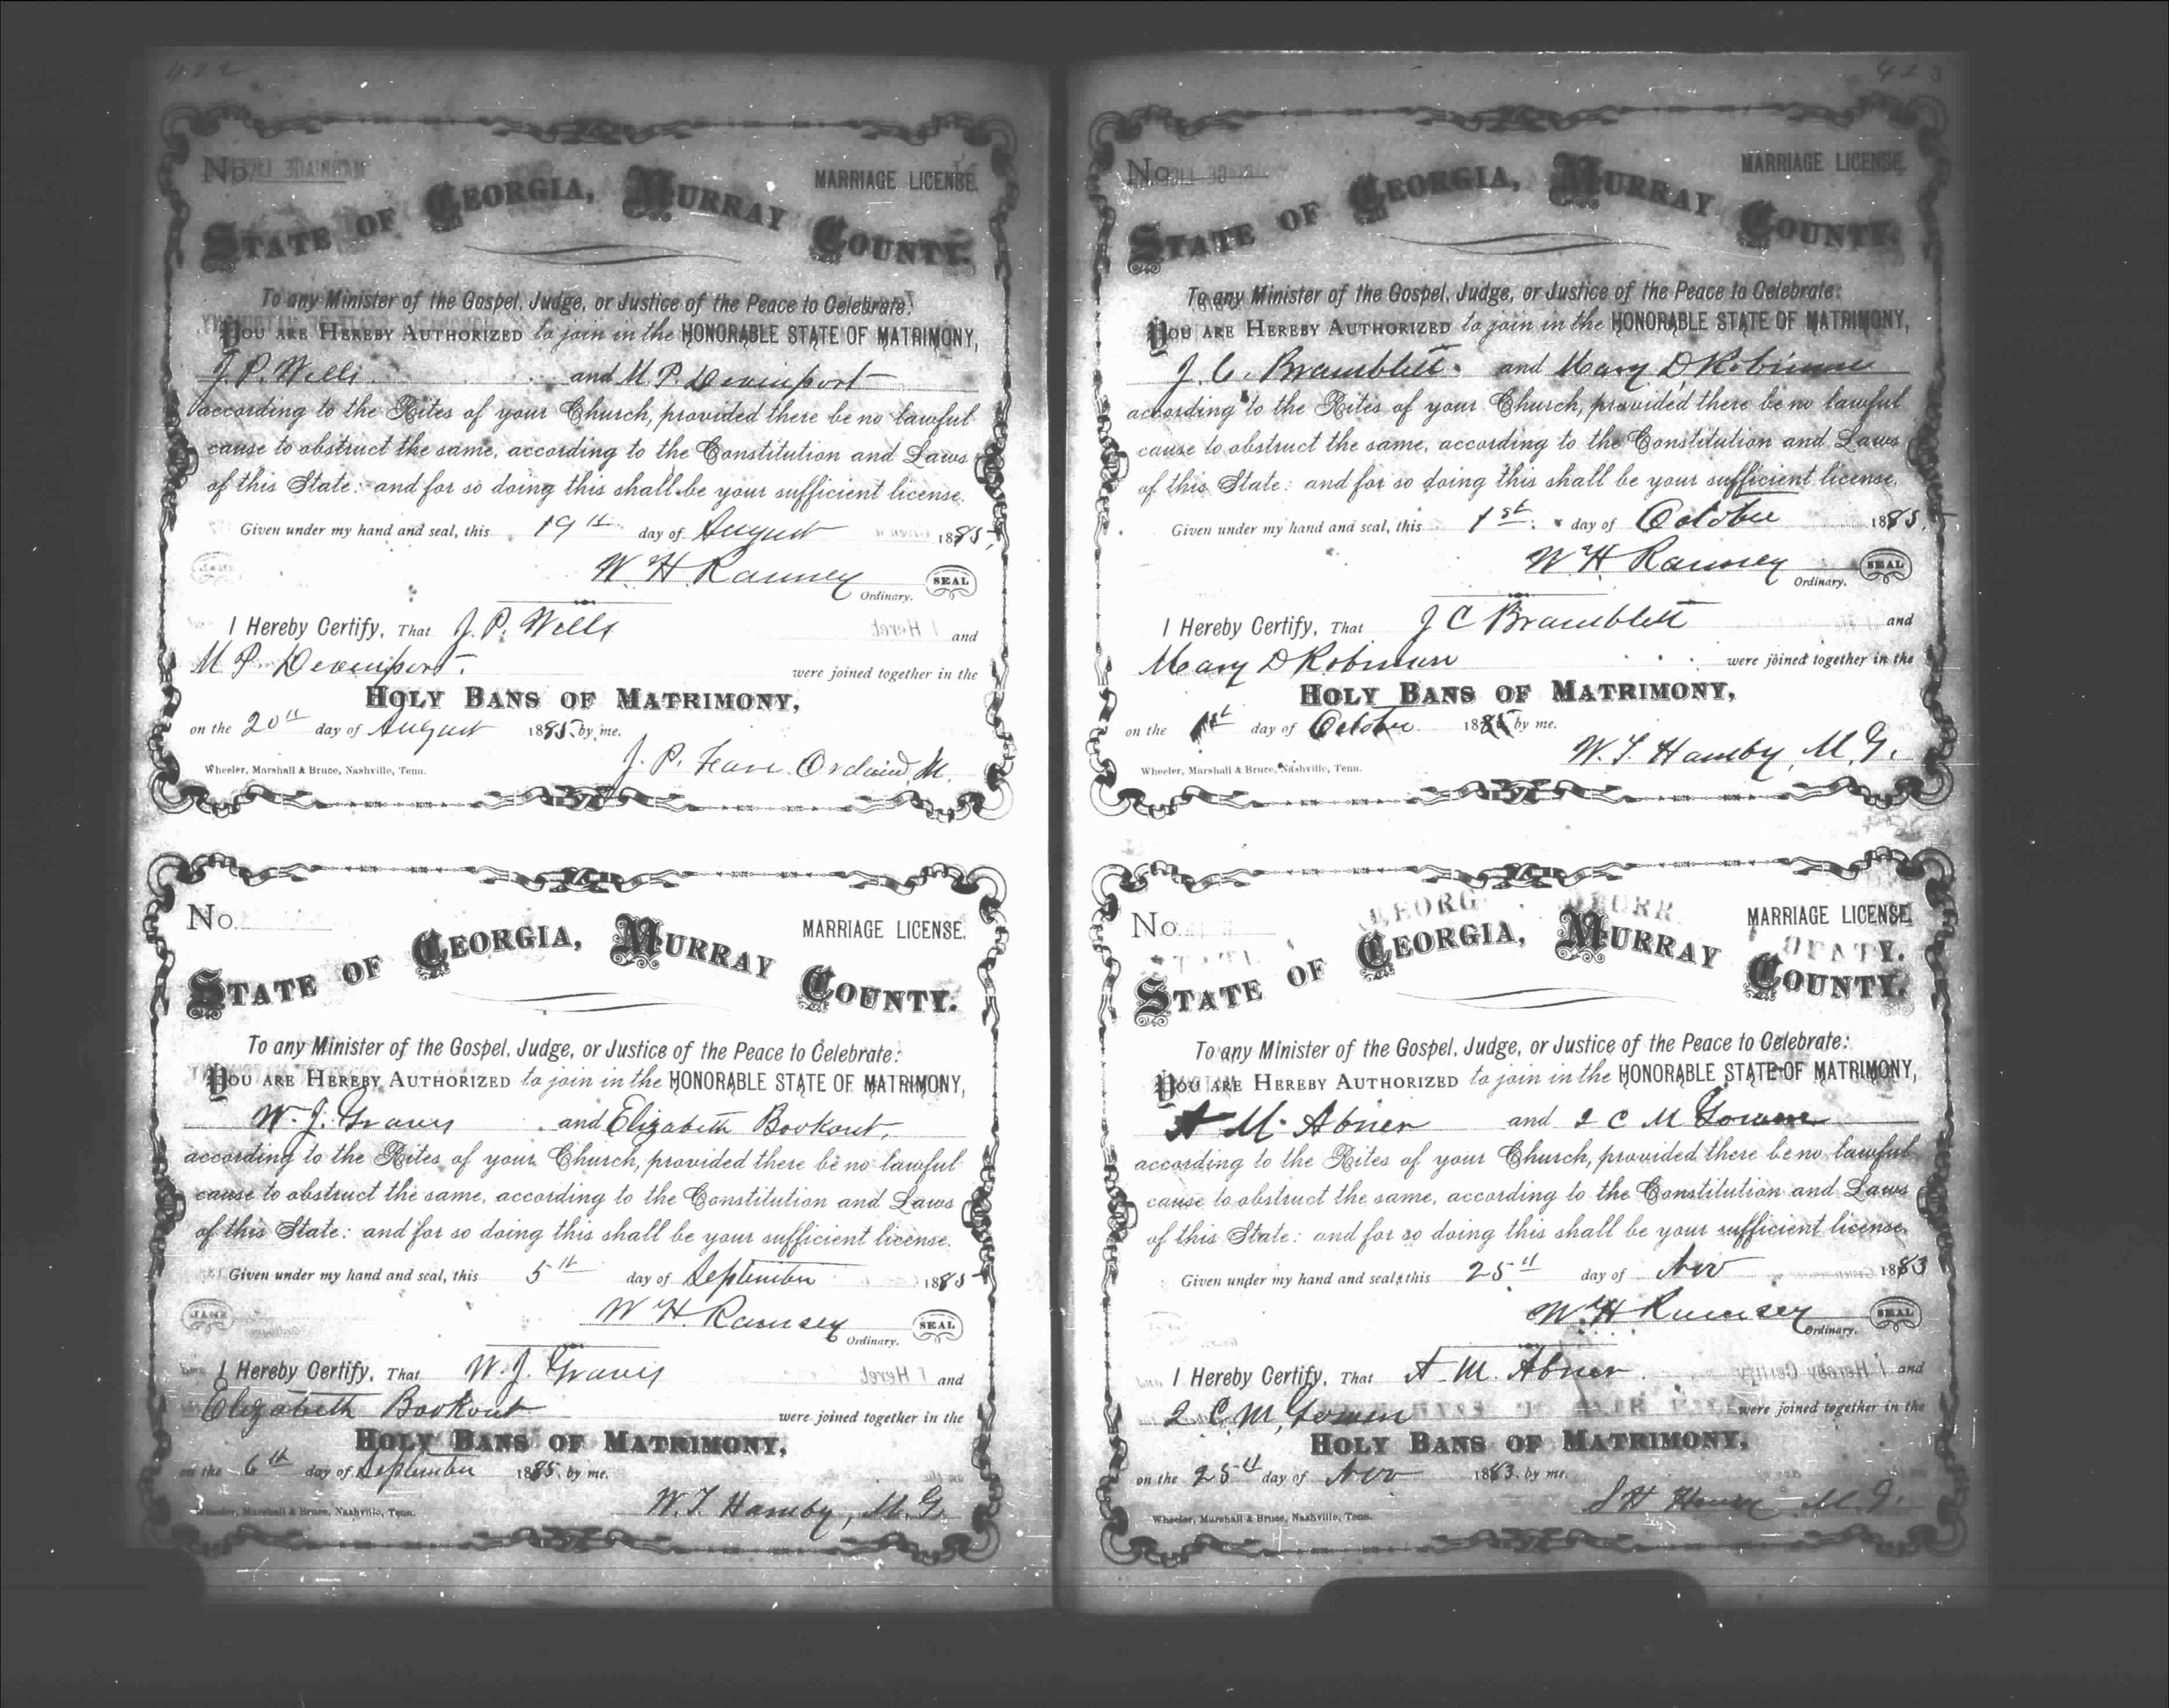 422
No.
MARRIAGE LICENSE.
STATE OF GEORGIA, MURRAY COUNTY.
To any Minister of the Gospel, Judge, or Justice of the Peace to Celebrate:
YOU ARE HEREBY AUTHORIZED to join in the HONORABLE STATE OF MATRIMONY,
J. P. Wells and M. P. Devenport
according to the Rites of your Church, provided there be no lawful
cause to obstruct the same, according to the Constitution and Laws
of this State: and for so doing this shall be your sufficient license.
Given under my hand and seal, this 19th day of August 1885,
W. H. Ramsey
SEAL
Ordinary.
I Hereby Certify, That J. P. Wells and
M P. Devenport. were joined together in the
HOLY BANS OF MATRIMONY,
on the 20th day of August 1885 by me.
J. P. Ordaind, M.
Wheeler, Marshall & Bruce, Nashville, Tenn.
No.
MARRIAGE LICENSE.
STATE OF GEORGIA, MURRAY COUNTY.
To any Minister of the Gospel, Judge, or Justice of the Peace to Celebrate:
YOU ARE HEREBY AUTHORIZED to join in the HONORABLE STATE OF MATRIMONY,
W. J. Graves and Elizabeth Bookout.
according to the Rites of your Church, provided there be no lawful
cause to obstruct the same, according to the Constitution and Laws
of this State: and for so doing this shall be your sufficient license.
Given under my hand and seal, this 5th day of September 1885
W H. Ramsey
SEAL
Ordinary.
I Hereby Certify, That W. J. Graves and
Elizabeth Bookout were joined together in the
HOLY BANS OF MATRIMONY,
on the 6th day of September 1885. by me.
W. T. Hamby, M. G.
Wheeler, Marshall & Bruce, Nashville, Tenn.
423
No.
MARRIAGE LICENSE.
STATE OF GEORGIA, MURRAY COUNTY.
To any Minister of the Gospel, Judge, or Justice of the Peace to Celebrate:
YOU ARE HEREBY AUTHORIZED to join in the HONORABLE STATE OF MATRIMONY,
J. C. Bramblett. and Mary D Robinson
according to the Rites of your Church, provided there be no lawful
cause to obstruct the same, according to the Constitution and Laws
of this State: and for so doing this shall be your sufficient license.
Given under my hand and seal, this 1st day of October 1885,
W. H. Ramsey
SEAL
Ordinary.
I Hereby Certify, That J C Bramblett and
Mary D Robinson were joined together in the
HOLY BANS OF MATRIMONY,
on the 1st day of October. 1885 by me.
W. T. Hamby, M. G.
Wheeler, Marshall & Bruce, Nashville, Tenn.
No.
MARRIAGE LICENSE.
STATE OF GEORGIA, MURRAY COUNTY.
To any Minister of the Gospel, Judge, or Justice of the Peace to Celebrate:
YOU ARE HEREBY AUTHORIZED to join in the HONORABLE STATE OF MATRIMONY,
A M. Abner and L C M Gowen
according to the Rites of your Church, provided there be no lawful
cause to obstruct the same, according to the Constitution and Laws
of this State: and for so doing this shall be your sufficient license.
Given under my hand and seal, this 25th day of Nov 1883
W. H Ramsey
SEAL
Ordinary.
I Hereby Certify, That A. M. Abner and
L C. M, Gowen were joined together in the
HOLY BANS OF MATRIMONY,
on the 25th day of Nov 1883. by me.
S H Henry M. G.
Wheeler, Marshall & Bruce, Nashville, Tenn.